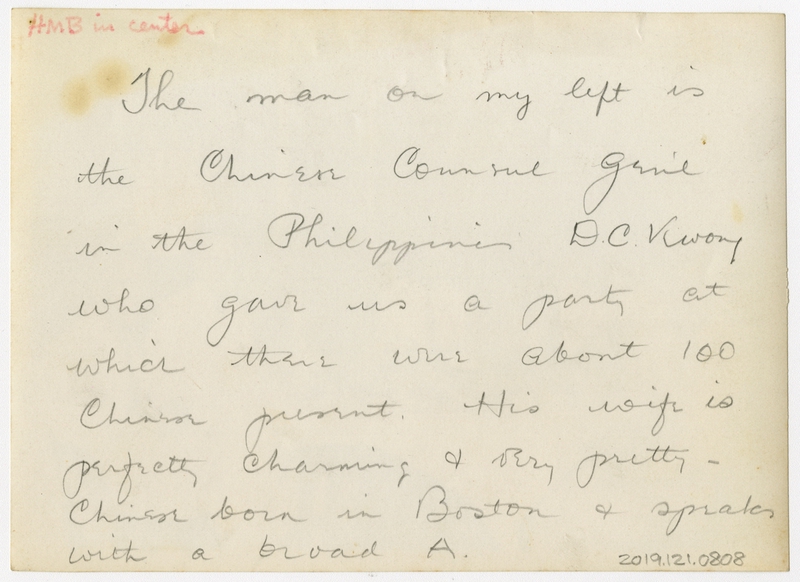 HMB in center
The man on my left is
the Chinese Counsul Gen'l
in the Philippines D.C. Kwong
who gave us a party at
which there were about 100
Chinese present. His wife is
perfectly charming & very pretty -
Chinese born in Boston & speaks
with a broad A.
2019.121.0808